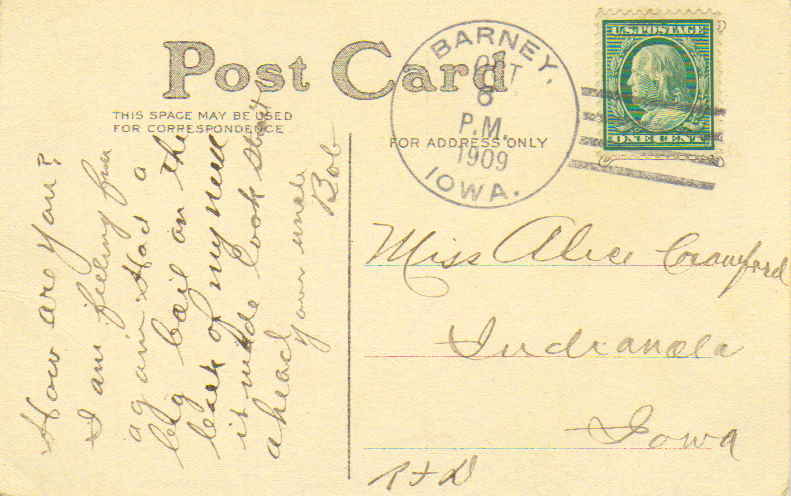 Post Card
THIS SPACE MAY BE USED
FOR CORRESPONDENCE
FOR ADDRESS ONLY
BARNEY,
OCT
6
P.M.
1909
IOWA.
U.S. POSTAGE
ONE CENT
How are you?
I am feeling fine
again Had a
big boil on the
back of my neck
it made look strait
ahead
your uncle
Bob
Miss Alice Crawford
Indianola
Iowa